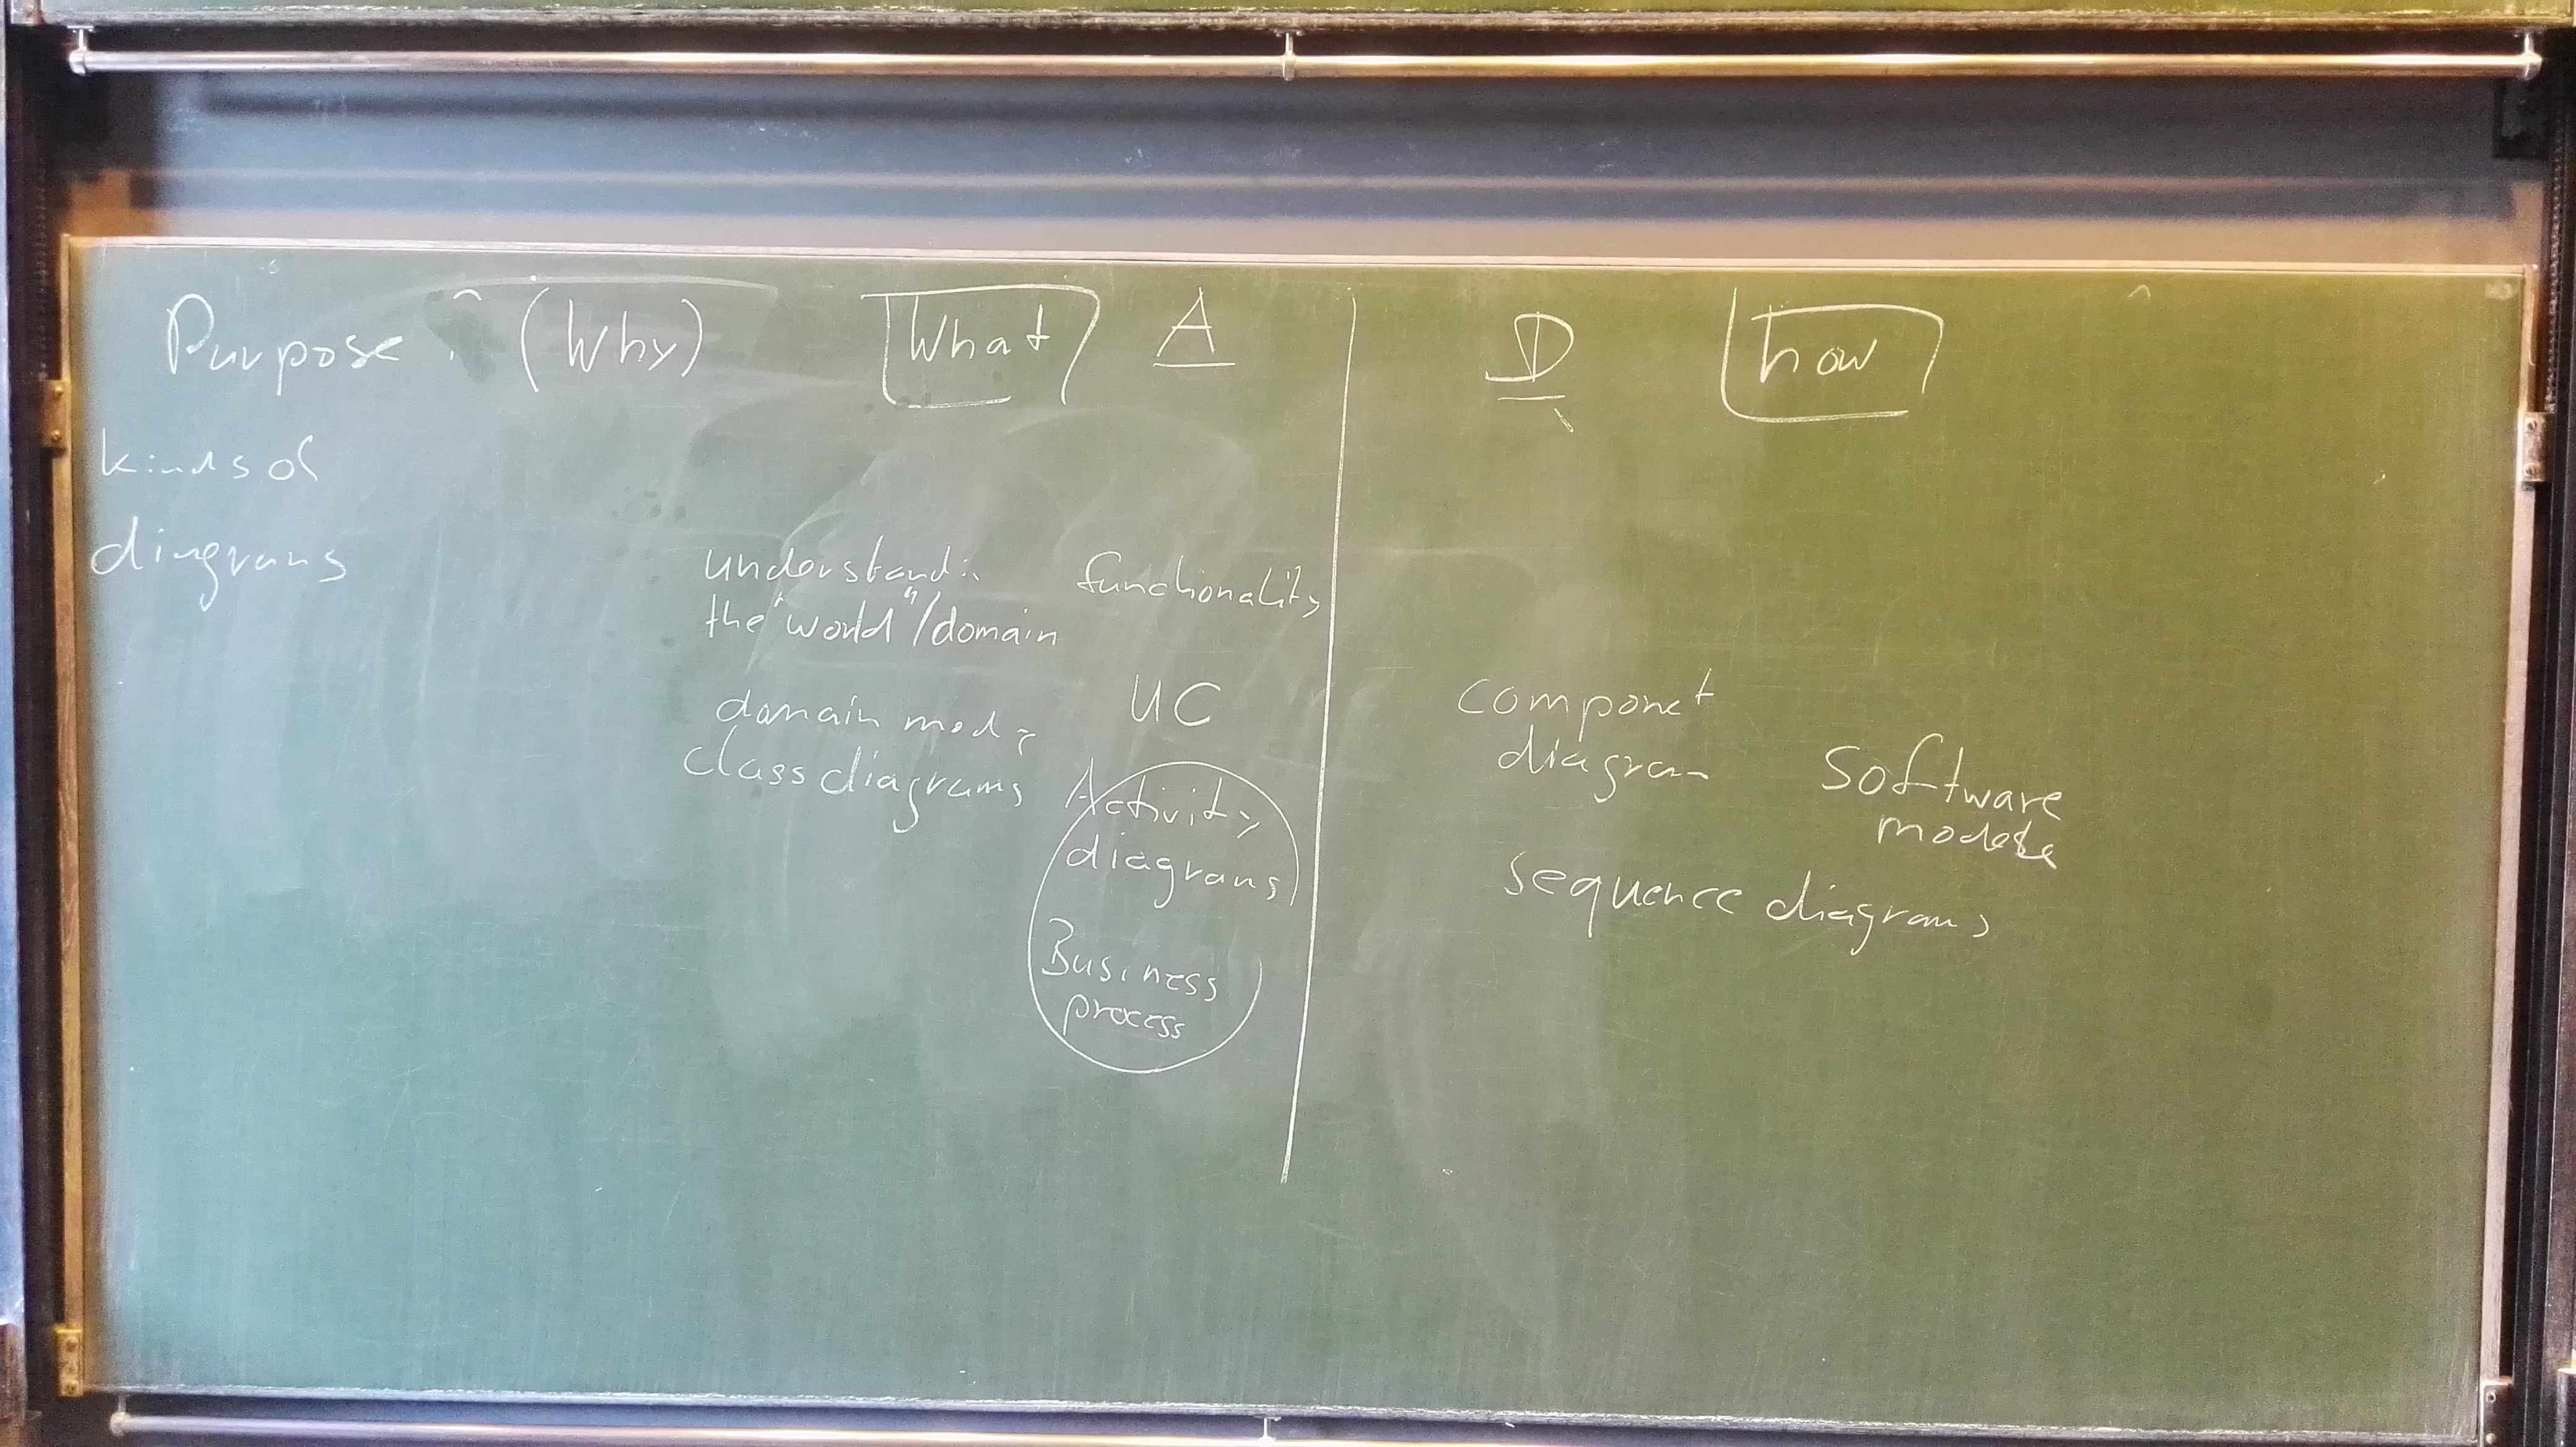 Purpose : (Why) What A D how
kinds of
diagrams
understand: functionality
the "world"/domain
domain mod UC
class diagrams
Activity
diagrams
Business
process
componet
diagram
Software
models
sequence diagrams